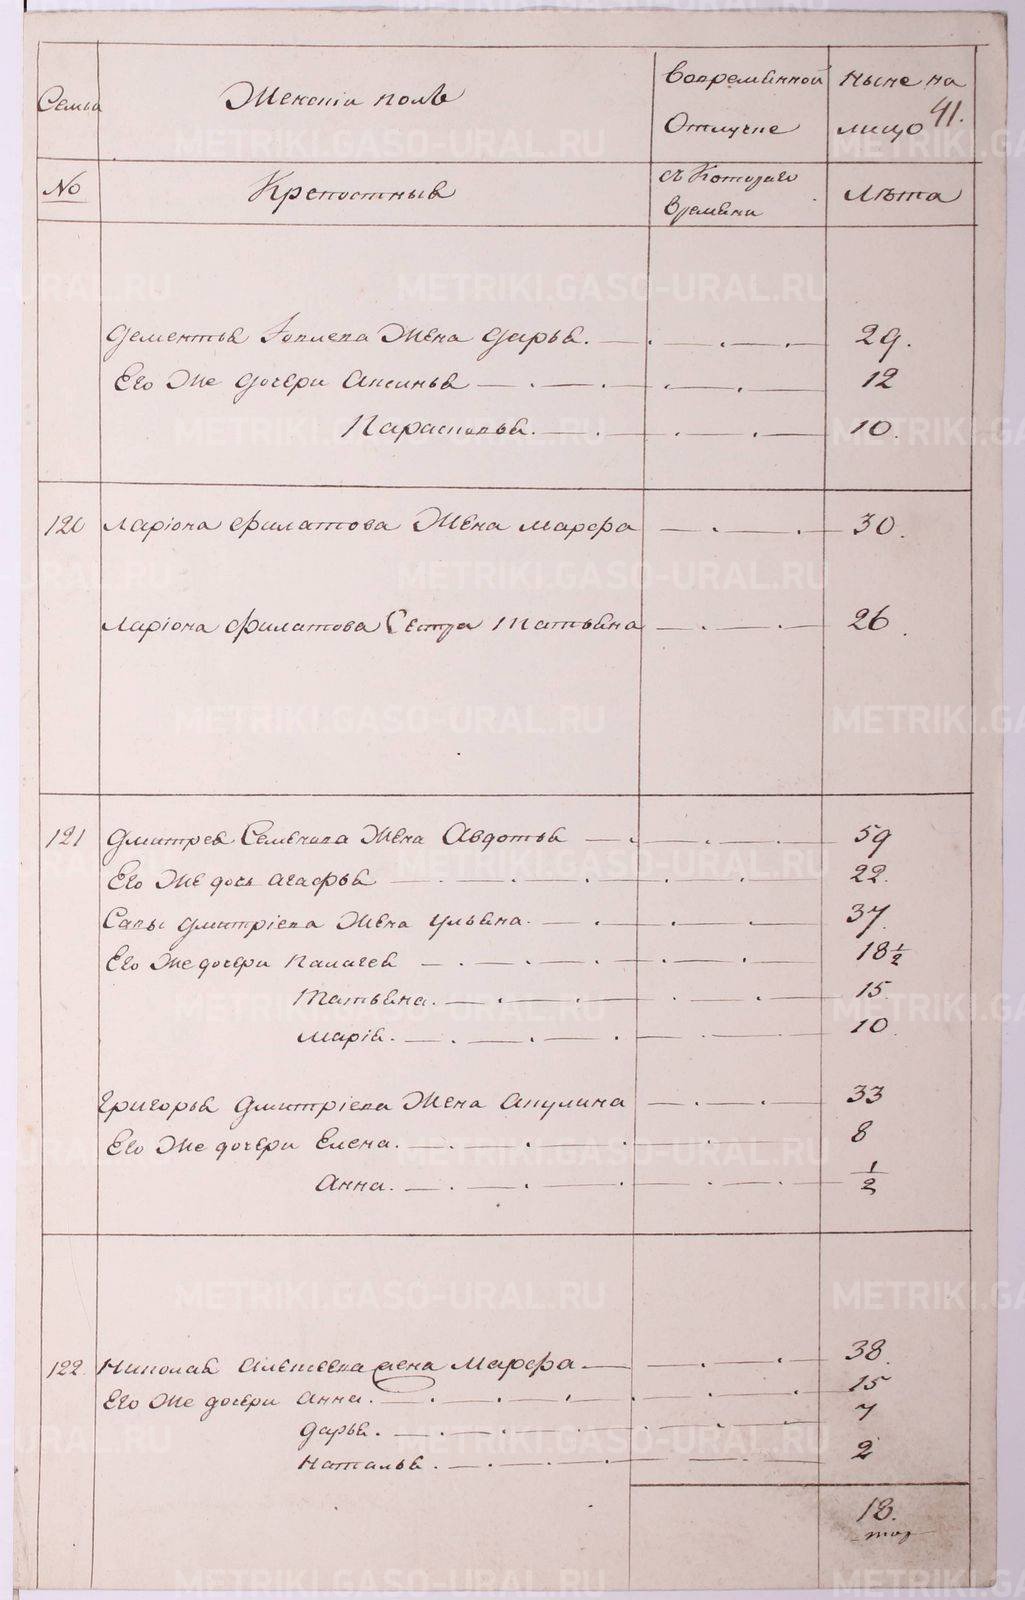 Семья
Женскiй полъ
Вовременной
Отлучке
ныне на
лицо
41.
No
Крепостныя
съ Которого
Времяни
Лѣта
Дементья жена Дарья. 29.
Его же дочери Аксинья 12
Парасковья. 10.
120 Ларiона Филатова жена Марфа 30.
Ларiона Филатова Сестра Татьяна 26.
121 Дмитрея Семенова жена Авдотья 59
Его же дочь Агафья 22.
Савы Дмитрiева жена Ульяна. 37.
Его же дочери Палагея 18 1/2
Татьяна. 15.
Марiя. 10.
Григорья Дмитрiева жена Акулина 33
Его же дочери Елена. 8
Анна. 1/2
122. Николая Алексеева жена Марфа 38.
Его же дочери Анна. 15
Дарья. 7
Наталья. 2
18.
METRIKI.GASO-URAL.RU